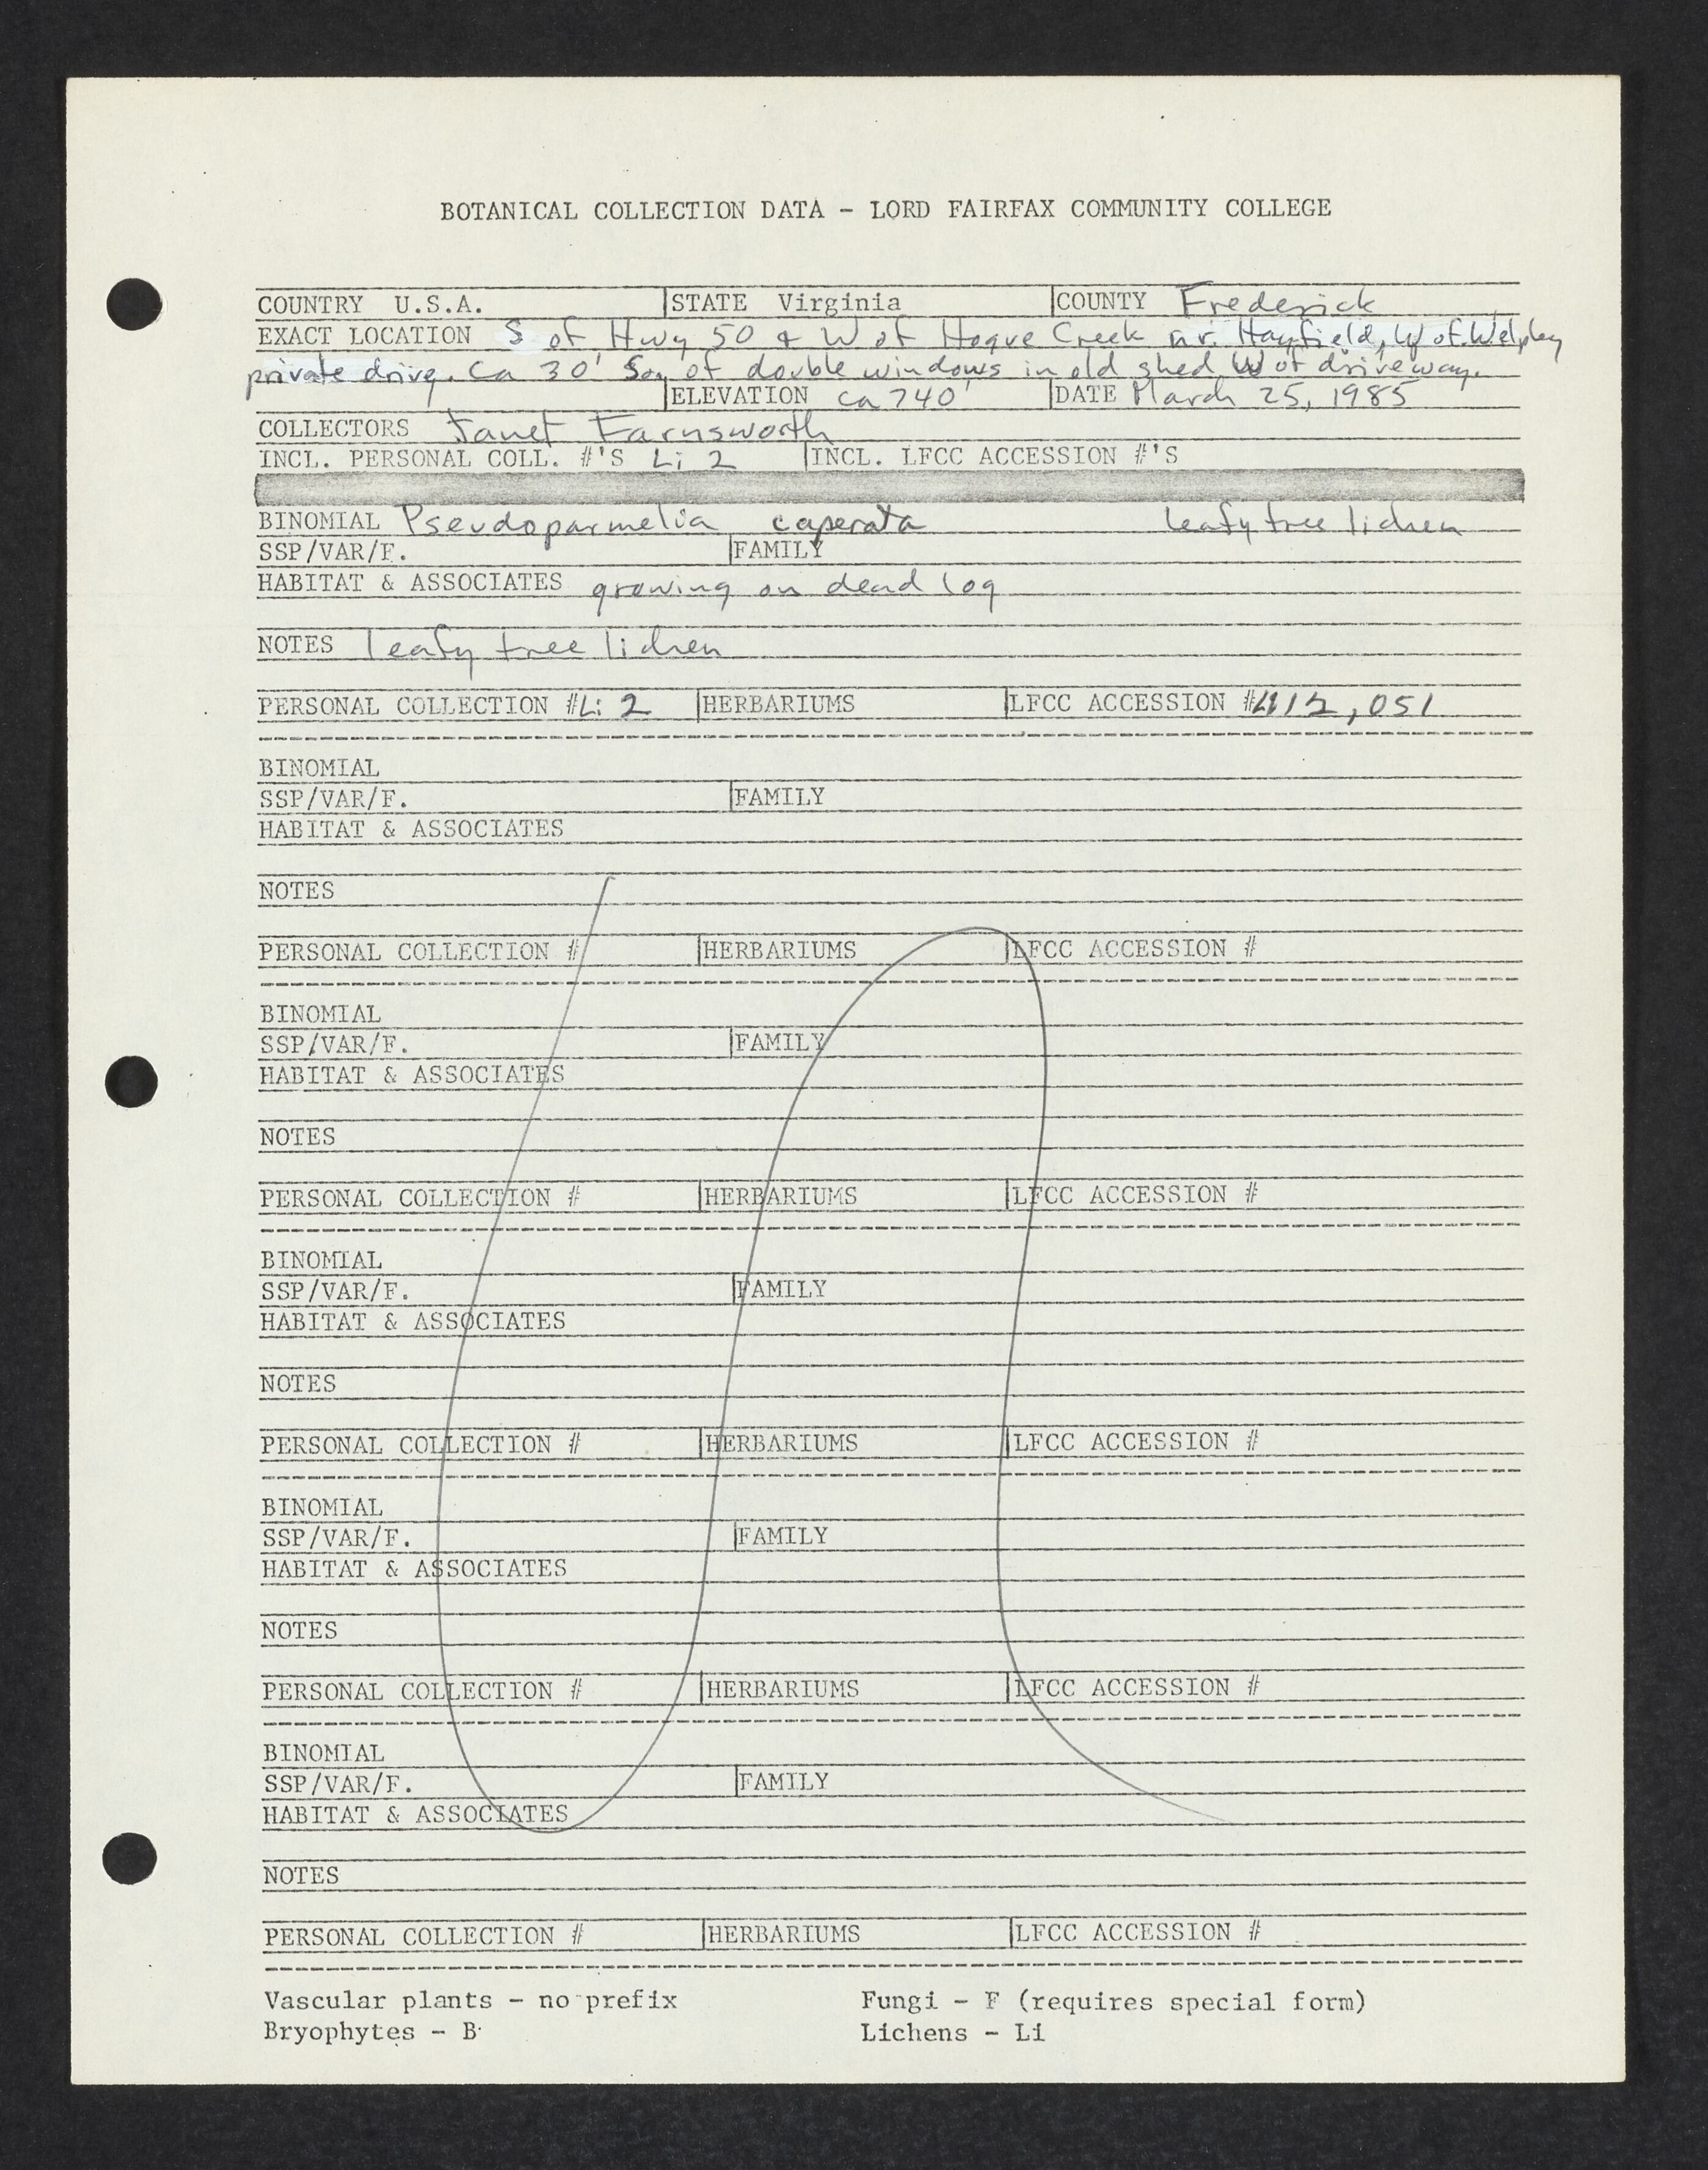 BOTANICAL COLLECTION DATA - LORD FAIRFAX COMMUNITY COLLEGE
COUNTRY U.S.A. STATE Virginia COUNTY Frederick
EXACT LOCATION S of Hwy 50 & W of Hogue Creek nr. Hayfield, W of Welpley
private drive. Ca 30' So. of double windows in old shed W of driveway.
ELEVATION ca 740' DATE March 25, 1985
COLLECTORS Janet Farnsworth
INCL. PERSONAL COLL. #'S Li 2 INCL. LFCC ACCESSION #'S
BINOMIAL Pseudoparmelia caperata leafy tree lichen
SSP/VAR/F. FAMILY
HABITAT & ASSOCIATES growing on dead log
NOTES leafy tree lichen
PERSONAL COLLECTION #Li 2 HERBARIUMS LFCC ACCESSION # ,051
BINOMIAL
SSP/VAR/F. FAMILY
HABITAT & ASSOCIATES
NOTES
PERSONAL COLLECTION # HERBARIUMS LFCC ACCESSION #
BINOMIAL
SSP/VAR/F. FAMILY
HABITAT & ASSOCIATES
NOTES
PERSONAL COLLECTION # HERBARIUMS LFCC ACCESSION #
BINOMIAL
SSP/VAR/F. FAMILY
HABITAT & ASSOCIATES
NOTES
PERSONAL COLLECTION # HERBARIUMS LFCC ACCESSION #
BINOMIAL
SSP/VAR/F. FAMILY
HABITAT & ASSOCIATES
NOTES
PERSONAL COLLECTION # HERBARIUMS LFCC ACCESSION #
BINOMIAL
SSP/VAR/F. FAMILY
HABITAT & ASSOCIATES
NOTES
PERSONAL COLLECTION # HERBARIUMS LFCC ACCESSION #
Vascular plants - no prefix Fungi - F (requires special form)
Bryophytes - B Lichens - Li